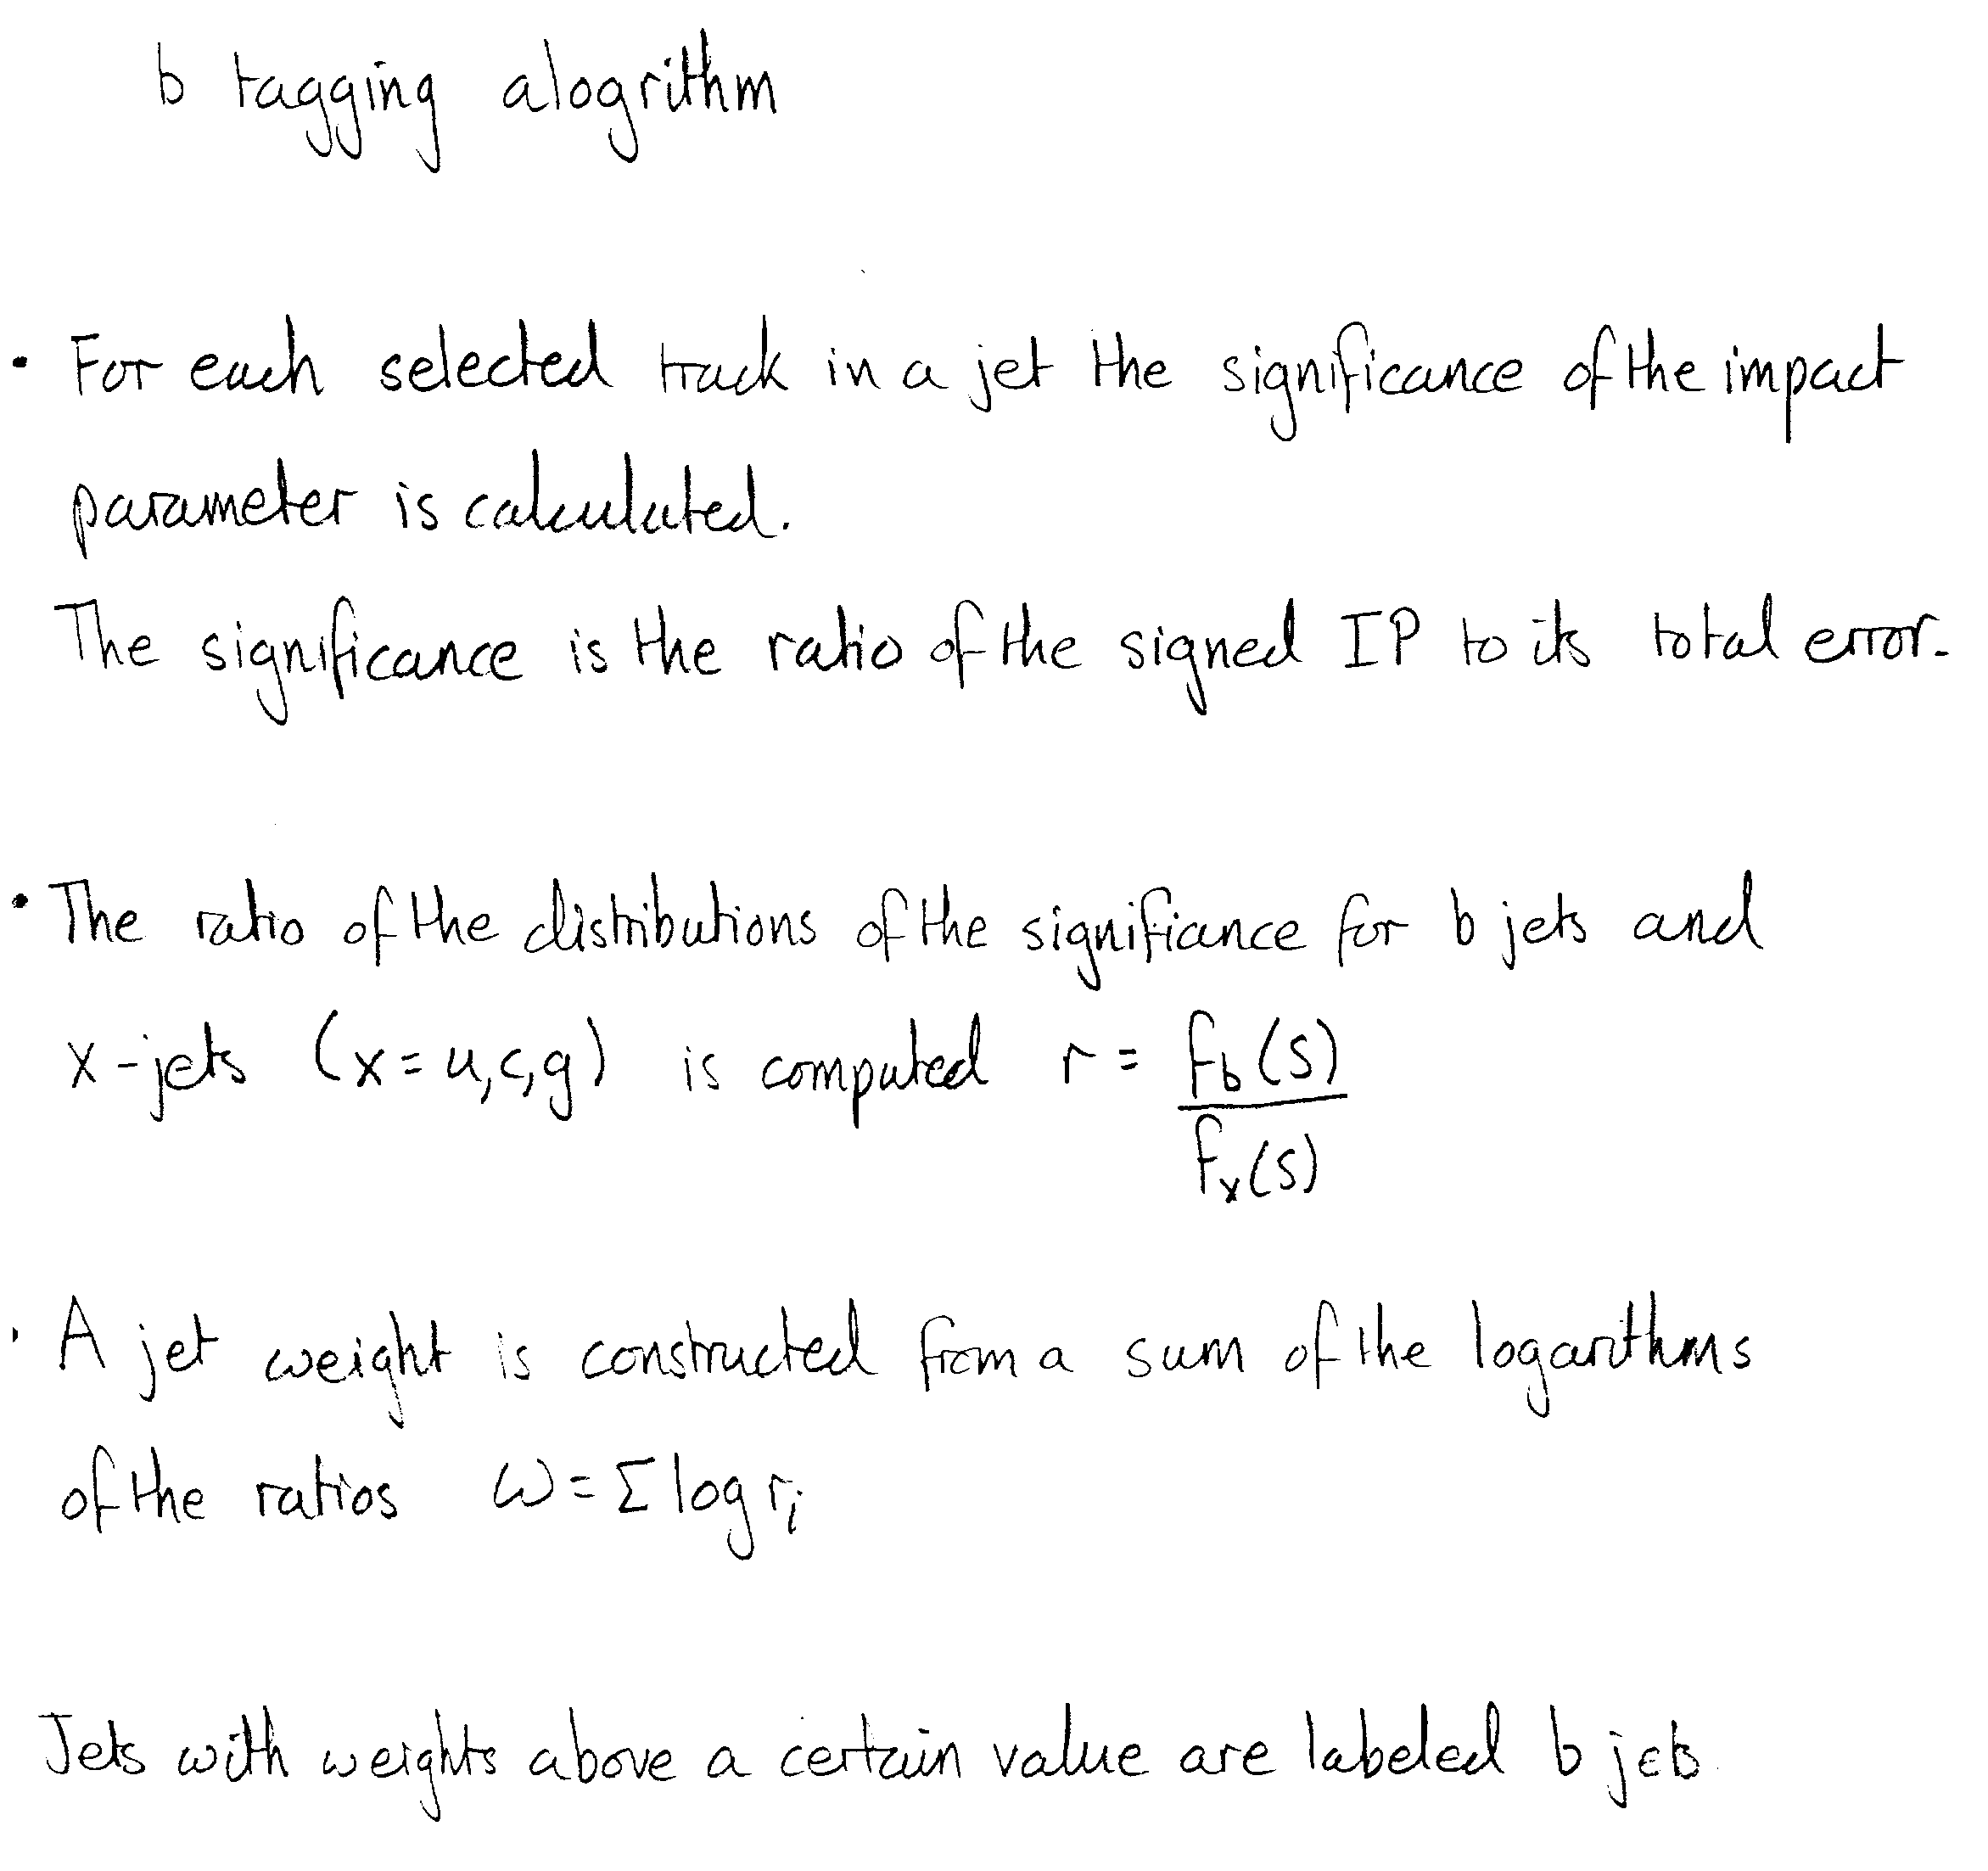 b tagging alogrithm
• For each selected track in a jet the significance of the impact
parameter is calculated.
The significance is the ratio of the signed IP to its total error.
• The ratio of the distributions of the significance for b jets and
x-jets (x=u,c,g) is computed r = f_b(s)
f_x(s)
• A jet weight is constructed from a sum of the logarithms
of the ratios ω=Σ log r_i
Jets with weights above a certain value are labeled b jets